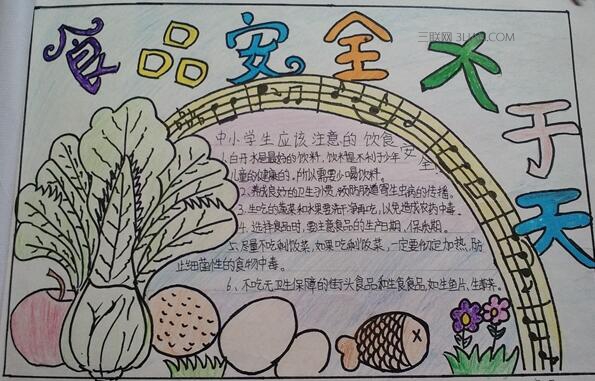 食品安全大于天
三联网 3LIAN.COM
中小学生应该注意的饮食安全
1、白开水是最好的饮料，饮料是不利于少年
儿童的健康的，所以需要少喝饮料。
2、养成良好的卫生习惯，预防肠道寄生虫病的传播。
3、生吃的蔬菜和水果要洗干净再吃，以免造成农药中毒。
4、选择食品时，要注意食品的生产日期、保质期。
5、尽量不吃剩饭菜，如果吃剩饭菜，一定要彻底加热，防
止细菌性的食物中毒。
6、不吃无卫生保障的街头食品和生食食品，如生鱼片、生